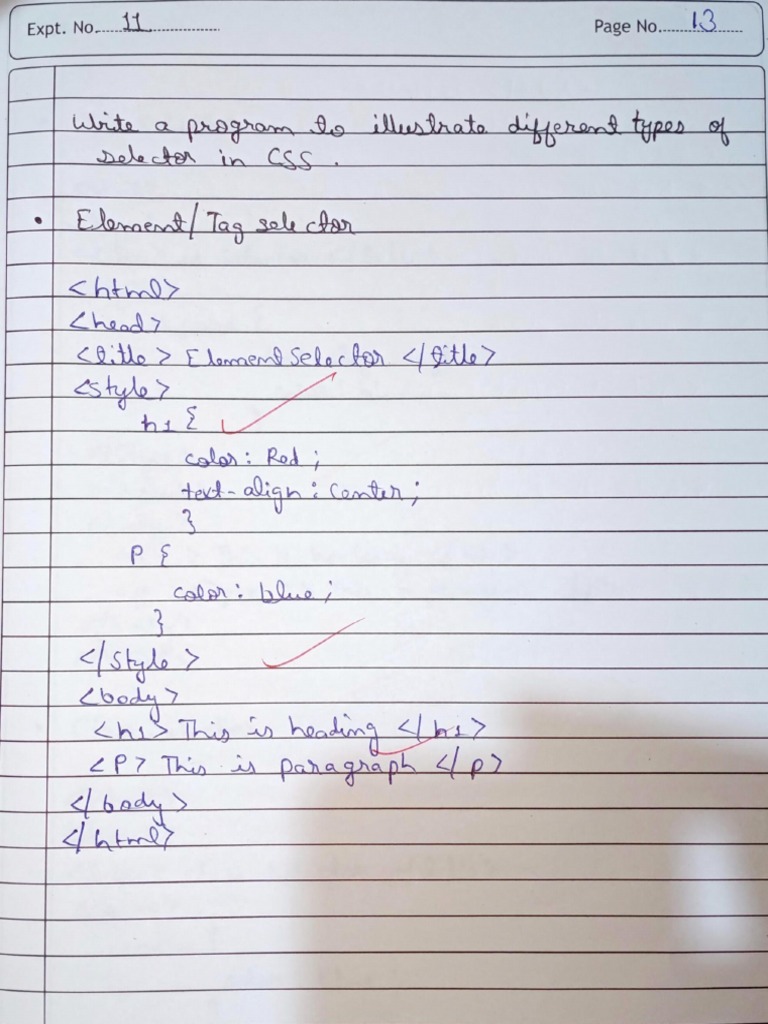 Expt. No. 11
Page No. 13
Write a program to illustrate different types of
selector in CSS.
• Element/Tag selector
<html>
<head>
<title> Element Selector </title>
<style>
h1 {
color: Red;
text-align: Center;
}
P {
color: blue;
}
</style>
<body>
<h1> This is heading </h1>
<P> This is paragraph </p>
</body>
</html>